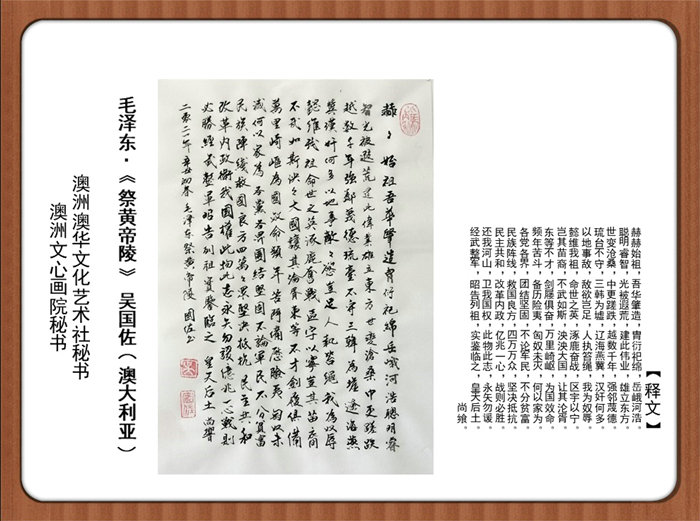 【释文】
赫赫始祖，吾华肇造，胄衍祀绵，岳峨河浩。
聪明睿智，光被遐荒，建此伟业，雄立东方。
世变沧桑，中更蹉跌，越数千年，强邻蔑德。
琉台不守，三韩为墟，辽海燕冀，汉奸何多。
以地事敌，敌欲岂足，人执笞绳，我为奴辱。
懿维我祖，命世之英，涿鹿奋战，区宇以宁。
岂其苗裔，不武如斯，泱泱大国，让其沦胥。
东等不才，剑屦俱奋，万里崎岖，为国效命。
频年苦斗，备历险夷，匈奴未灭，何以家为。
各党各界，团结坚固，不论军民，不分贫富。
民族阵线，救国良方，四万万众，坚决抵抗。
民主共和，改革内政，亿兆一心，战则必胜。
还我河山，卫我国权，此物此志，永矢勿谖。
经武整军，昭告列祖，实鉴临之，皇天后土。
尚飨。
赫々始祖吾华肇造胄衍祀绵岳峨河浩聪明睿
智光被遐荒建此伟业雄立东方世变沧桑中更蹉跌
越数千年强邻蔑德琉台不守三韩为墟辽海燕
冀汉奸何多以地事敌々欲岂足人执笞绳我为奴辱
懿维我祖命世之英涿鹿奋战区宇以宁岂其苗裔
不武如斯泱々大国让其沦胥东等不才剑屦俱奋
万里崎岖为国效命频年苦斗备历险夷匈奴未
灭何以家为各党各界团结坚固不论军民不分贫富
民族阵线救国良方四万万众坚决抵抗民主共和
改革内政卫我国权此物此志永矢勿谖亿兆一心战则
必胜经武整军昭告列祖实鉴临之皇天后土尚飨
二零二一年辛丑初春毛泽东祭黄帝陵国佐书
毛泽东·《祭黄帝陵》吴国佐（澳大利亚）
澳洲澳华文化艺术社秘书
澳洲文心画院秘书